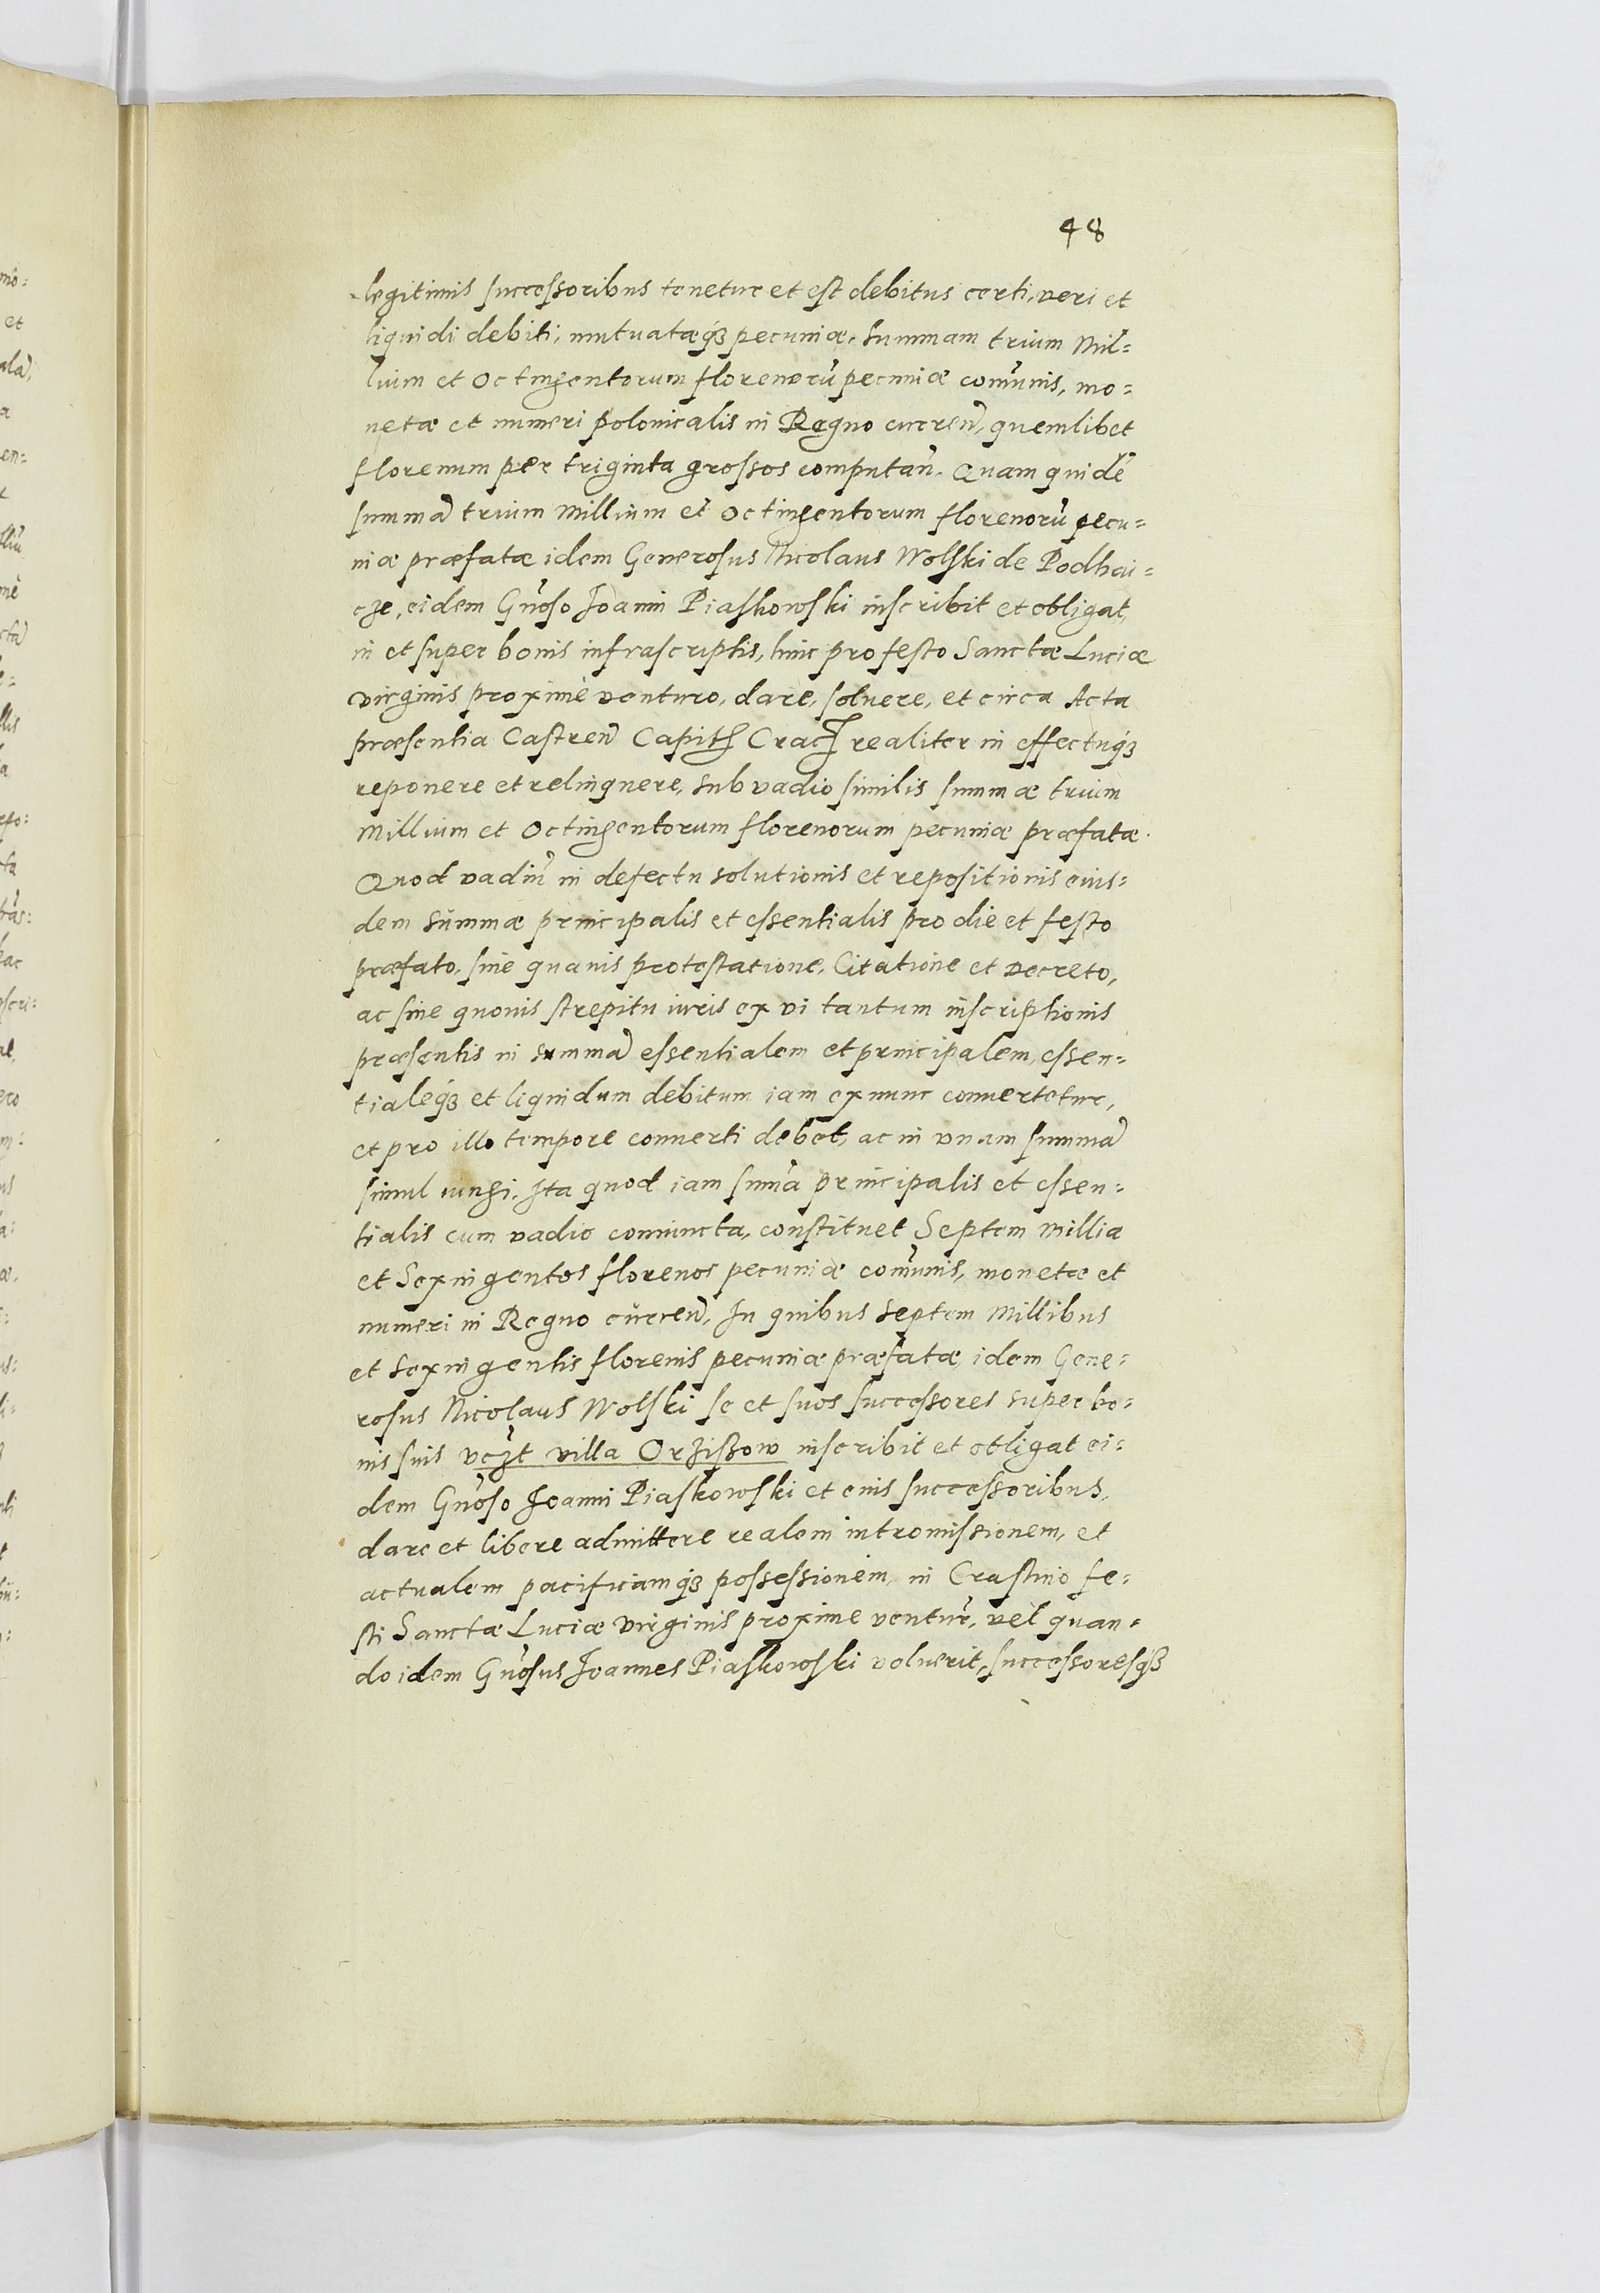 48
legitimis successoribus tenetur et est debitus certi, veri et
liquidi debiti, mutuatæq́ꝫ pecuniæ, summam trium Mil=
lium et Octingentorum florenorũ pecuniæ com̃unis, mo=
netæ et numeri polonicalis in Regno curreñ, quemlibet
florenum per triginta grossos computañ. Quam quidẽ
summã trium Millium et Octingentorum florenorũ pecu=
niæ præfatæ idem Generosus Nicolaus Wolski de Podhai=
cze, eidem Gñoso Joanni Piaskowski inscribit et obligat,
in et super bonis infrascriptis, hinc pro festo Sanctæ Luciæ
virginis proximè venturo, dare, soluere, et circa Acta
præsentia Castreñ Capitꝭ Cracꝭ realiter in effectuq́ꝫ
reponere et relinquere, sub vadio similis summæ trium
Millium et Octingentorum florenorum pecuniæ præfatæ.
Quod vadiũ in defectu solutionis et repositionis eius=
dem summæ principalis et essentialis pro die et festo
præfato, sine quauis protestatione, Citatione et Decreto,
ac sine quouis strepitu iuris ex vi tantum inscriptionis
præsentis in summã essentialem et principalem, essen=
tialeq́ꝫ et liquidum debitum iam ex nunc conuertetur,
et pro illo tempore conuerti debet, ac in vnam summã
simul iungi. Ita quod iam sum̃a principalis et essen=
tialis cum vadio coniuncta, constituet Septem Millia
et Sexingentos florenos pecuniæ com̃unis, monetæ et
numeri in Regno curreñ, In quibus Septem Millibus
et Sexingentis florenis pecuniæ præfatæ, idem Gene=
rosus Nicolaus Wolski se et suos successores super bo=
nis suis vꝫt villa Orzissow inscribit et obligat ei=
dem Gñoso Joanni Piaskowski et eius successoribus,
dare et libere admittere realem intromissionem, et
actualem pacificamq́ꝫ possessionem, in Crastino fe=
sti Sanctæ Luciæ virginis proxime ventur̃, vel quan=
do idem Gñosus Joannes Piaskowski voluerit, successoresq́ꝫ